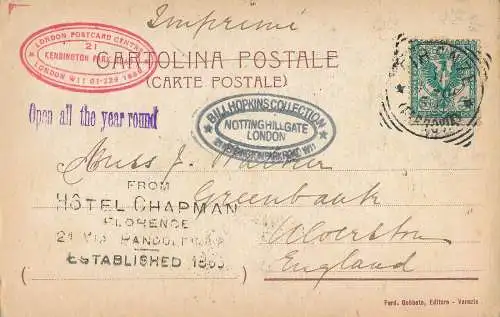 Imprimé
CARTOLINA POSTALE
(CARTE POSTALE)
LONDON POSTCARD CENTRE
21
KENSINGTON PARK
LONDON W11 01-229 1888
Open all the year round
BILL HOPKINS COLLECTION
NOTTINGHILL GATE
LONDON
KENSINGTON PARK ROAD W11
FIRENZE
(FERROVIA)
Miss J.
Greenbank
Ulverston
England
FROM
HÔTEL CHAPMAN
FLORENCE
21 VIA PANDOLFINI
ESTABLISHED 1860
Ferd. Gobbato, Editore - Venezia